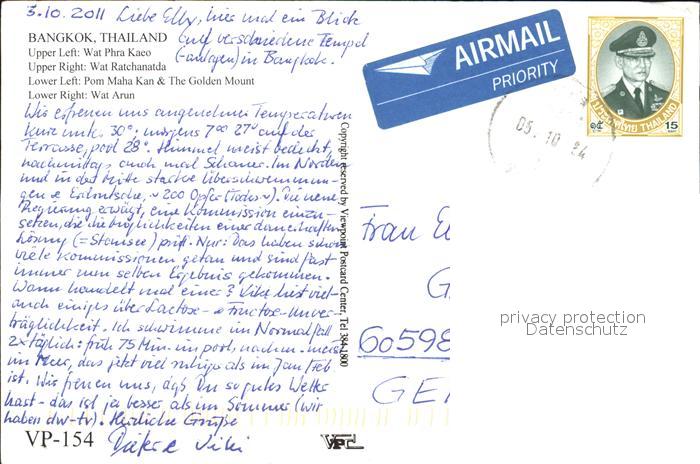 3.10.2011 Liebe Elly, hier mal ein Blick
auf verschiedene Tempel
(-anlagen) in Bangkok.
BANGKOK, THAILAND
Upper Left: Wat Phra Kaeo
Upper Right: Wat Ratchanatda
Lower Left: Pom Maha Kan & The Golden Mount
Lower Right: Wat Arun
Wir erfreuen uns angenehmer Temperaturen
kurz unter 30°, morgens 7⁰⁰ 27° auf der
Terrasse, pool 28°. Himmel meist bedeckt,
nachmittags auch mal Schauer. Im Norden
und in der Mitte starke Überschwemmun-
gen + Erdrutsche, ~ 200 Opfer (Todes-). Die neue
Regierung erwägt, eine Kommission einzu-
setzen, die die Möglichkeiten einer dauerhaften
Lösung (= Stauseen) prüft. Nur: Das haben schon
viele Kommissionen getan und sind fast
immer zum selben Ergebnis gekommen.
Wann handelt mal einer? Viki liest viel-
auch einiges über Lactose- + Fructose-Unver-
träglichkeit. Ich schwimme im Normalfall
2x täglich: früh 75 Min. im pool, nachm. meist
im Meer, das jetzt viel ruhiger als im Jan/Feb
ist. Wir freuen uns, daß Du so gutes Wetter
hast - das ist ja besser als im Sommer (wir
haben dw-tv). Herzliche Grüße
VP-154
Viki
Copyright reserved by Viewpoint Postcard Center, Tel 384-1800
VPC
AIRMAIL
PRIORITY
05. 10 24
THAILAND
15
Frau E
G
60598
GE
privacy protection
Datenschutz